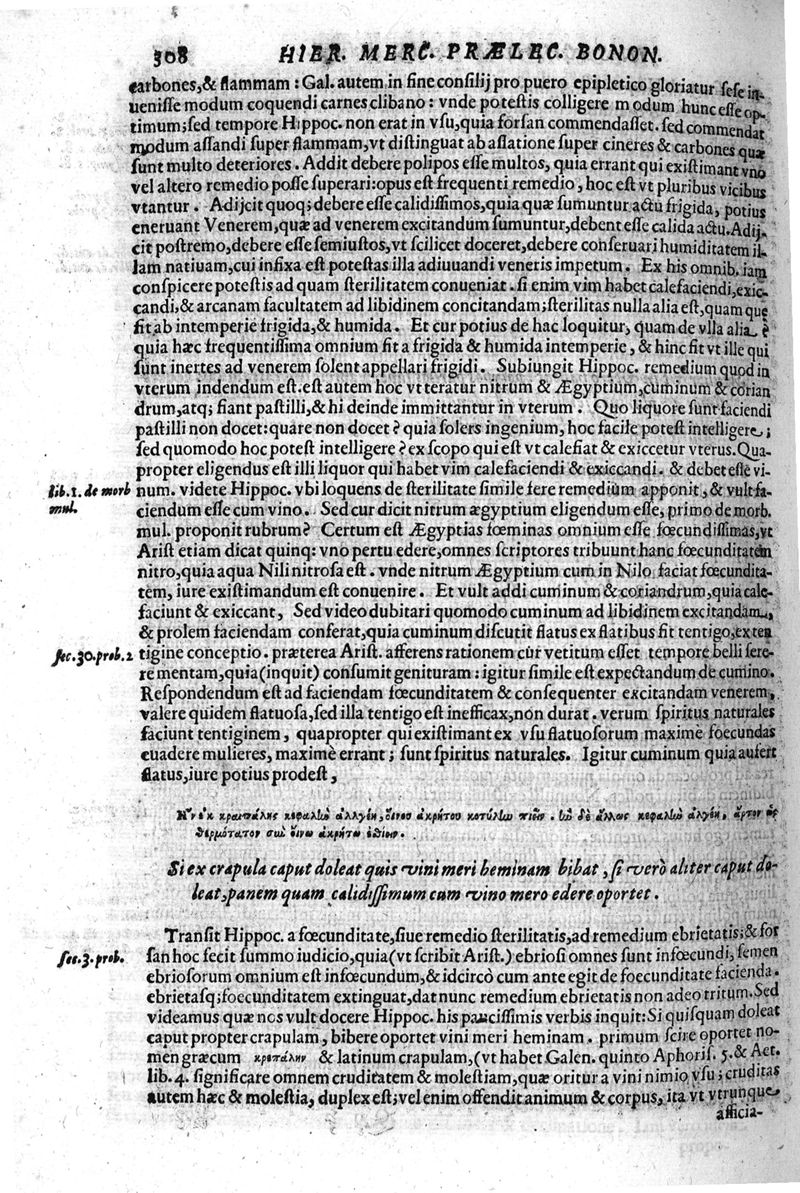 308 HIER. MERC. PRÆLEC. BONON.
carbones,& flammam : Gal. autem in fine consilij pro puero epipletico gloriatur sese in-
uenisse modum coquendi carnes clibano : vnde potestis colligere modum hunc esse op-
timum;sed tempore Hippoc. non erat in vsu,quia forsan commendasset. sed commendat
modum assandi super flammam,vt distinguat ab assatione super cineres & carbones quæ
sunt multo deteriores. Addit debere polipos esse multos, quia errant qui existimant vno
vel altero remedio posse superari:opus est frequenti remedio, hoc est vt pluribus vicibus
vtantur. Adijcit quoq; debere esse calidissimos,quia quæ sumuntur actu frigida, potius
eneruant Venerem,quæ ad venerem excitandum sumuntur,debent esse calida actu.Adij-
cit postremo,debere esse semiustos,vt scilicet doceret,debere conseruari humiditatem il-
lam natiuam,cui infixa est potestas illa adiuuandi veneris impetum. Ex his omnib. iam
conspicere potestis ad quam sterilitatem conueniat. si enim vim habet calefaciendi,exic-
candi,& arcanam facultatem ad libidinem concitandam;sterilitas nulla alia est,quam quę
fit ab intemperie frigida,& humida. Et cur potius de hac loquitur, quam de vlla alia è
quia hæc frequentissima omnium fit a frigida & humida intemperie, & hinc fit vt ille qui
sunt inertes ad venerem solent appellari frigidi. Subiungit Hippoc. remedium quod in
vterum indendum est.est autem hoc vt teratur nitrum & Ægyptium,cuminum & corian
drum,atq; fiant pastilli,& hi deinde immittantur in vterum. Quo liquore sunt faciendi
pastilli non docet:quare non docet ? quia solers ingenium, hoc facile potest intelligere;
sed quomodo hoc potest intelligere ? ex scopo qui est vt calefiat & exiccetur vterus.Qua-
propter eligendus est illi liquor qui habet vim calefaciendi & exiccandi. & debet esse vi-
lib.1. de morb num. videte Hippoc. vbi loquens de sterilitate simile fere remedium apponit, & vult fa-
mul. ciendum esse cum vino. Sed cur dicit nitrum ægyptium eligendum esse, primo de morb.
mul. proponit rubrum? Certum est Ægyptias fœminas omnium esse fœcundissimas,vt
Arist etiam dicat quinq: vno pertu edere,omnes scriptores tribuunt hanc fœcunditatem
nitro,quia aqua Nili nitrosa est. vnde nitrum Ægyptium cum in Nilo faciat fœcundita-
tem, iure existimandum est conuenire. Et vult addi cuminum & coriandrum,quia cale-
faciunt & exiccant, Sed video dubitari quomodo cuminum ad libidinem excitandam,
& prolem faciendam conferat,quia cuminum discutit flatus ex flatibus fit tentigo,ex ten
sec.30.prob.2 tigine conceptio. præterea Arist. afferens rationem cùr vetitum esset tempore belli sere-
re mentam,quia(inquit) consumit genituram : igitur simile est expectandum de cumino.
Respondendum est ad faciendam fœcunditatem & consequenter excitandam venerem,
valere quidem flatuosa,sed illa tentigo est inefficax,non durat. verum spiritus naturales
faciunt tentiginem, quapropter qui existimant ex vsu flatuosorum maxime foecundas
euadere mulieres, maximè errant; sunt spiritus naturales. Igitur cuminum quia aufert
flatus,iure potius prodest,
Si ex crapula caput doleat quis vini meri heminam bibat, si verò aliter caput do-
leat,panem quam calidissimum cum vino mero edere oportet.
Transit Hippoc. a fœcunditate,siue remedio sterilitatis,ad remedium ebrietatis;& for
sec.3.prob. san hoc fecit summo iudicio,quia(vt scribit Arist.) ebriosi omnes sunt infœcundi, semen
ebriosorum omnium est infœcundum,& idcircò cum ante egit de foecunditate facienda.
ebrietasq;foecunditatem extinguat,dat nunc remedium ebrietatis non adeo tritum.Sed
videamus quæ nos vult docere Hippoc. his paucissimis verbis inquit:Si quisquam doleat
caput propter crapulam, bibere oportet vini meri heminam. primum scire oportet no-
men græcum & latinum crapulam,(vt habet Galen. quinto Aphoris. 5.& Aet.
lib. 4. significare omnem cruditatem & molestiam,quæ oritur a vini nimio vsu; cruditas
autem hæc & molestia, duplex est;vel enim offendit animum & corpus, ita vt vtrunque
afficia-